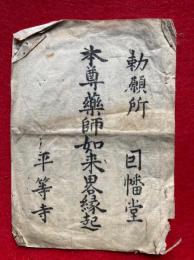 勅願所 因幡堂
本尊藥師如来畧縁起
平等寺